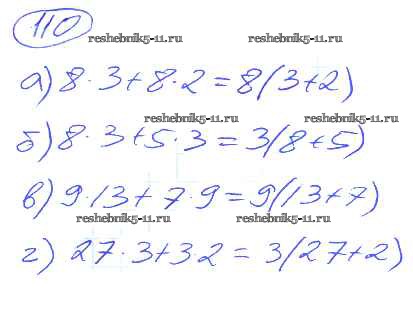 110
reshebnik5-11.ru reshebnik5-11.ru
а) 8·3+8·2=8(3+2)
reshebnik5-11.ru reshebnik5-11.ru
б) 8·3+5·3=3(8+5)
в) 9·13+7·9=9(13+7)
reshebnik5-11.ru reshebnik5-11.ru
г) 27·3+3·2=3(27+2)